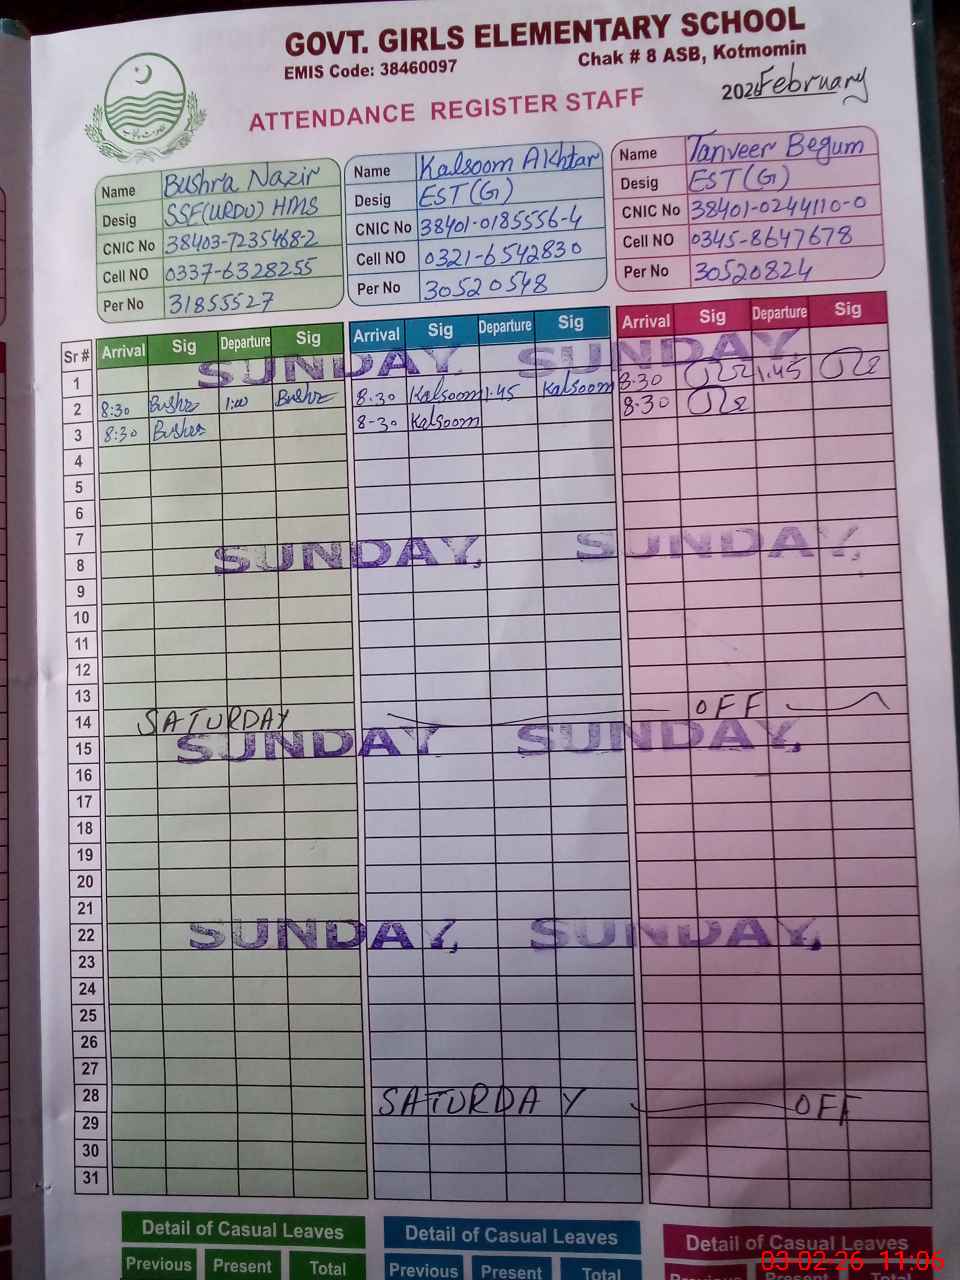 GOVT. GIRLS ELEMENTARY SCHOOL
EMIS Code: 38460097 Chak # 8 ASB, Kotmomin
ATTENDANCE REGISTER STAFF 2026 February
Name Bushra Nazir
Desig SSE(URDU) HMS
CNIC No 38403-7235468-2
Cell NO 0337-6328255
Per No 31855527
Name Kalsoom Akhtar
Desig EST(G)
CNIC No 38401-0185556-4
Cell NO 0321-6542830
Per No 30520548
Name Tanveer Begum
Desig EST(G)
CNIC No 38401-0244110-0
Cell NO 0345-8647678
Per No 30520824
Sr # Arrival Sig Departure Sig Arrival Sig Departure Sig Arrival Sig Departure Sig
1 SUNDAY, SUNDAY,
2 8:30 Bushra 1:00 Bushra 8.30 Kalsoom 1.45 Kalsoom 8.30 1.45
3 8:30 Bushra 8-30 Kalsoom 8-30
4
5
6
7
8 SUNDAY, SUNDAY,
9
10
11
12
13
14 SATURDAY OFF
15 SUNDAY SUNDAY,
16
17
18
19
20
21
22 SUNDAY, SUNDAY,
23
24
25
26
27
28 SATURDAY OFF
29
30
31
Detail of Casual Leaves Detail of Casual Leaves Detail of Casual Leaves
Previous Present Total Previous Present Total Previous Present Total
03-02-26 11:06